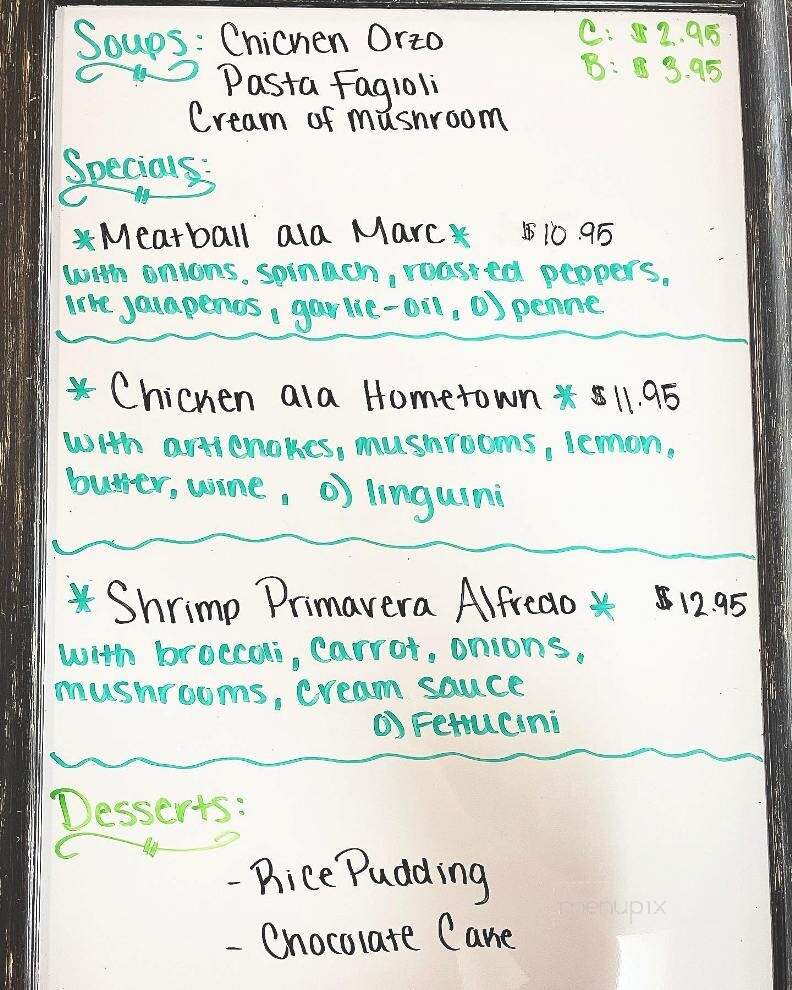 Soups: Chicken Orzo C: $2.95
Pasta Fagioli B: $3.95
Cream of mushroom
Specials:
*Meatball ala Marc* $10.95
with onions, spinach, roasted peppers,
lite jalapenos, garlic-oil, o) penne
* Chicken ala Hometown * $11.95
with artichokes, mushrooms, lemon,
butter, wine, o) linguini
* Shrimp Primavera Alfredo * $12.95
with broccoli, carrot, onions,
mushrooms, cream sauce
o) Fettucini
Desserts:
- Rice Pudding
menupix
- Chocolate Cake